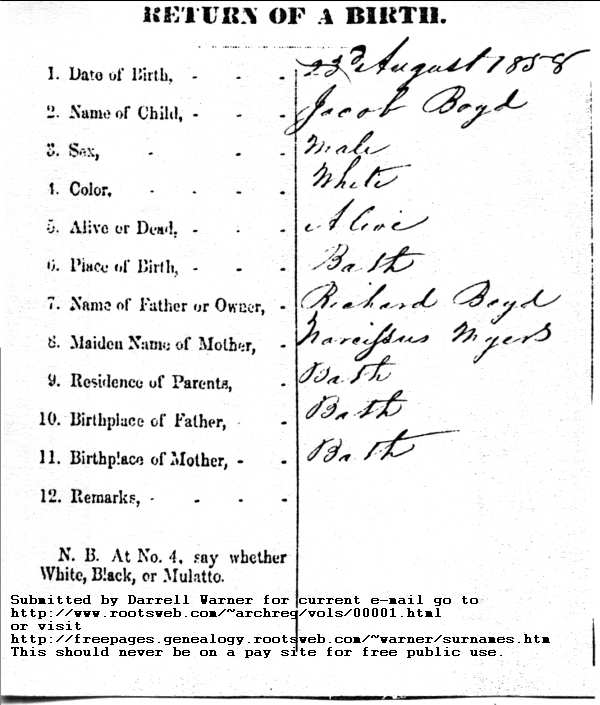 RETURN OF A BIRTH.
1. Date of Birth, - - - 23d August 1858
2. Name of Child, - - - Jacob Boyd
3. Sex, - - - Male
4. Color, - - - - White
5. Alive or Dead, - - - Alive
6. Place of Birth, - - - Bath
7. Name of Father or Owner, - Richard Boyd
8. Maiden Name of Mother, - Narcissus Myers
9. Residence of Parents, - Bath
10. Birthplace of Father, - - Bath
11. Birthplace of Mother, - - Bath
12. Remarks, - - - -
N. B. At No. 4, say whether
White, Black, or Mulatto.
Submitted by Darrell Warner for current e-mail go to
http://www.rootsweb.com/~archreg/vols/00001.html
or visit
http://freepages.genealogy.rootsweb.com/~warner/surnames.htm
This should never be on a pay site for free public use.